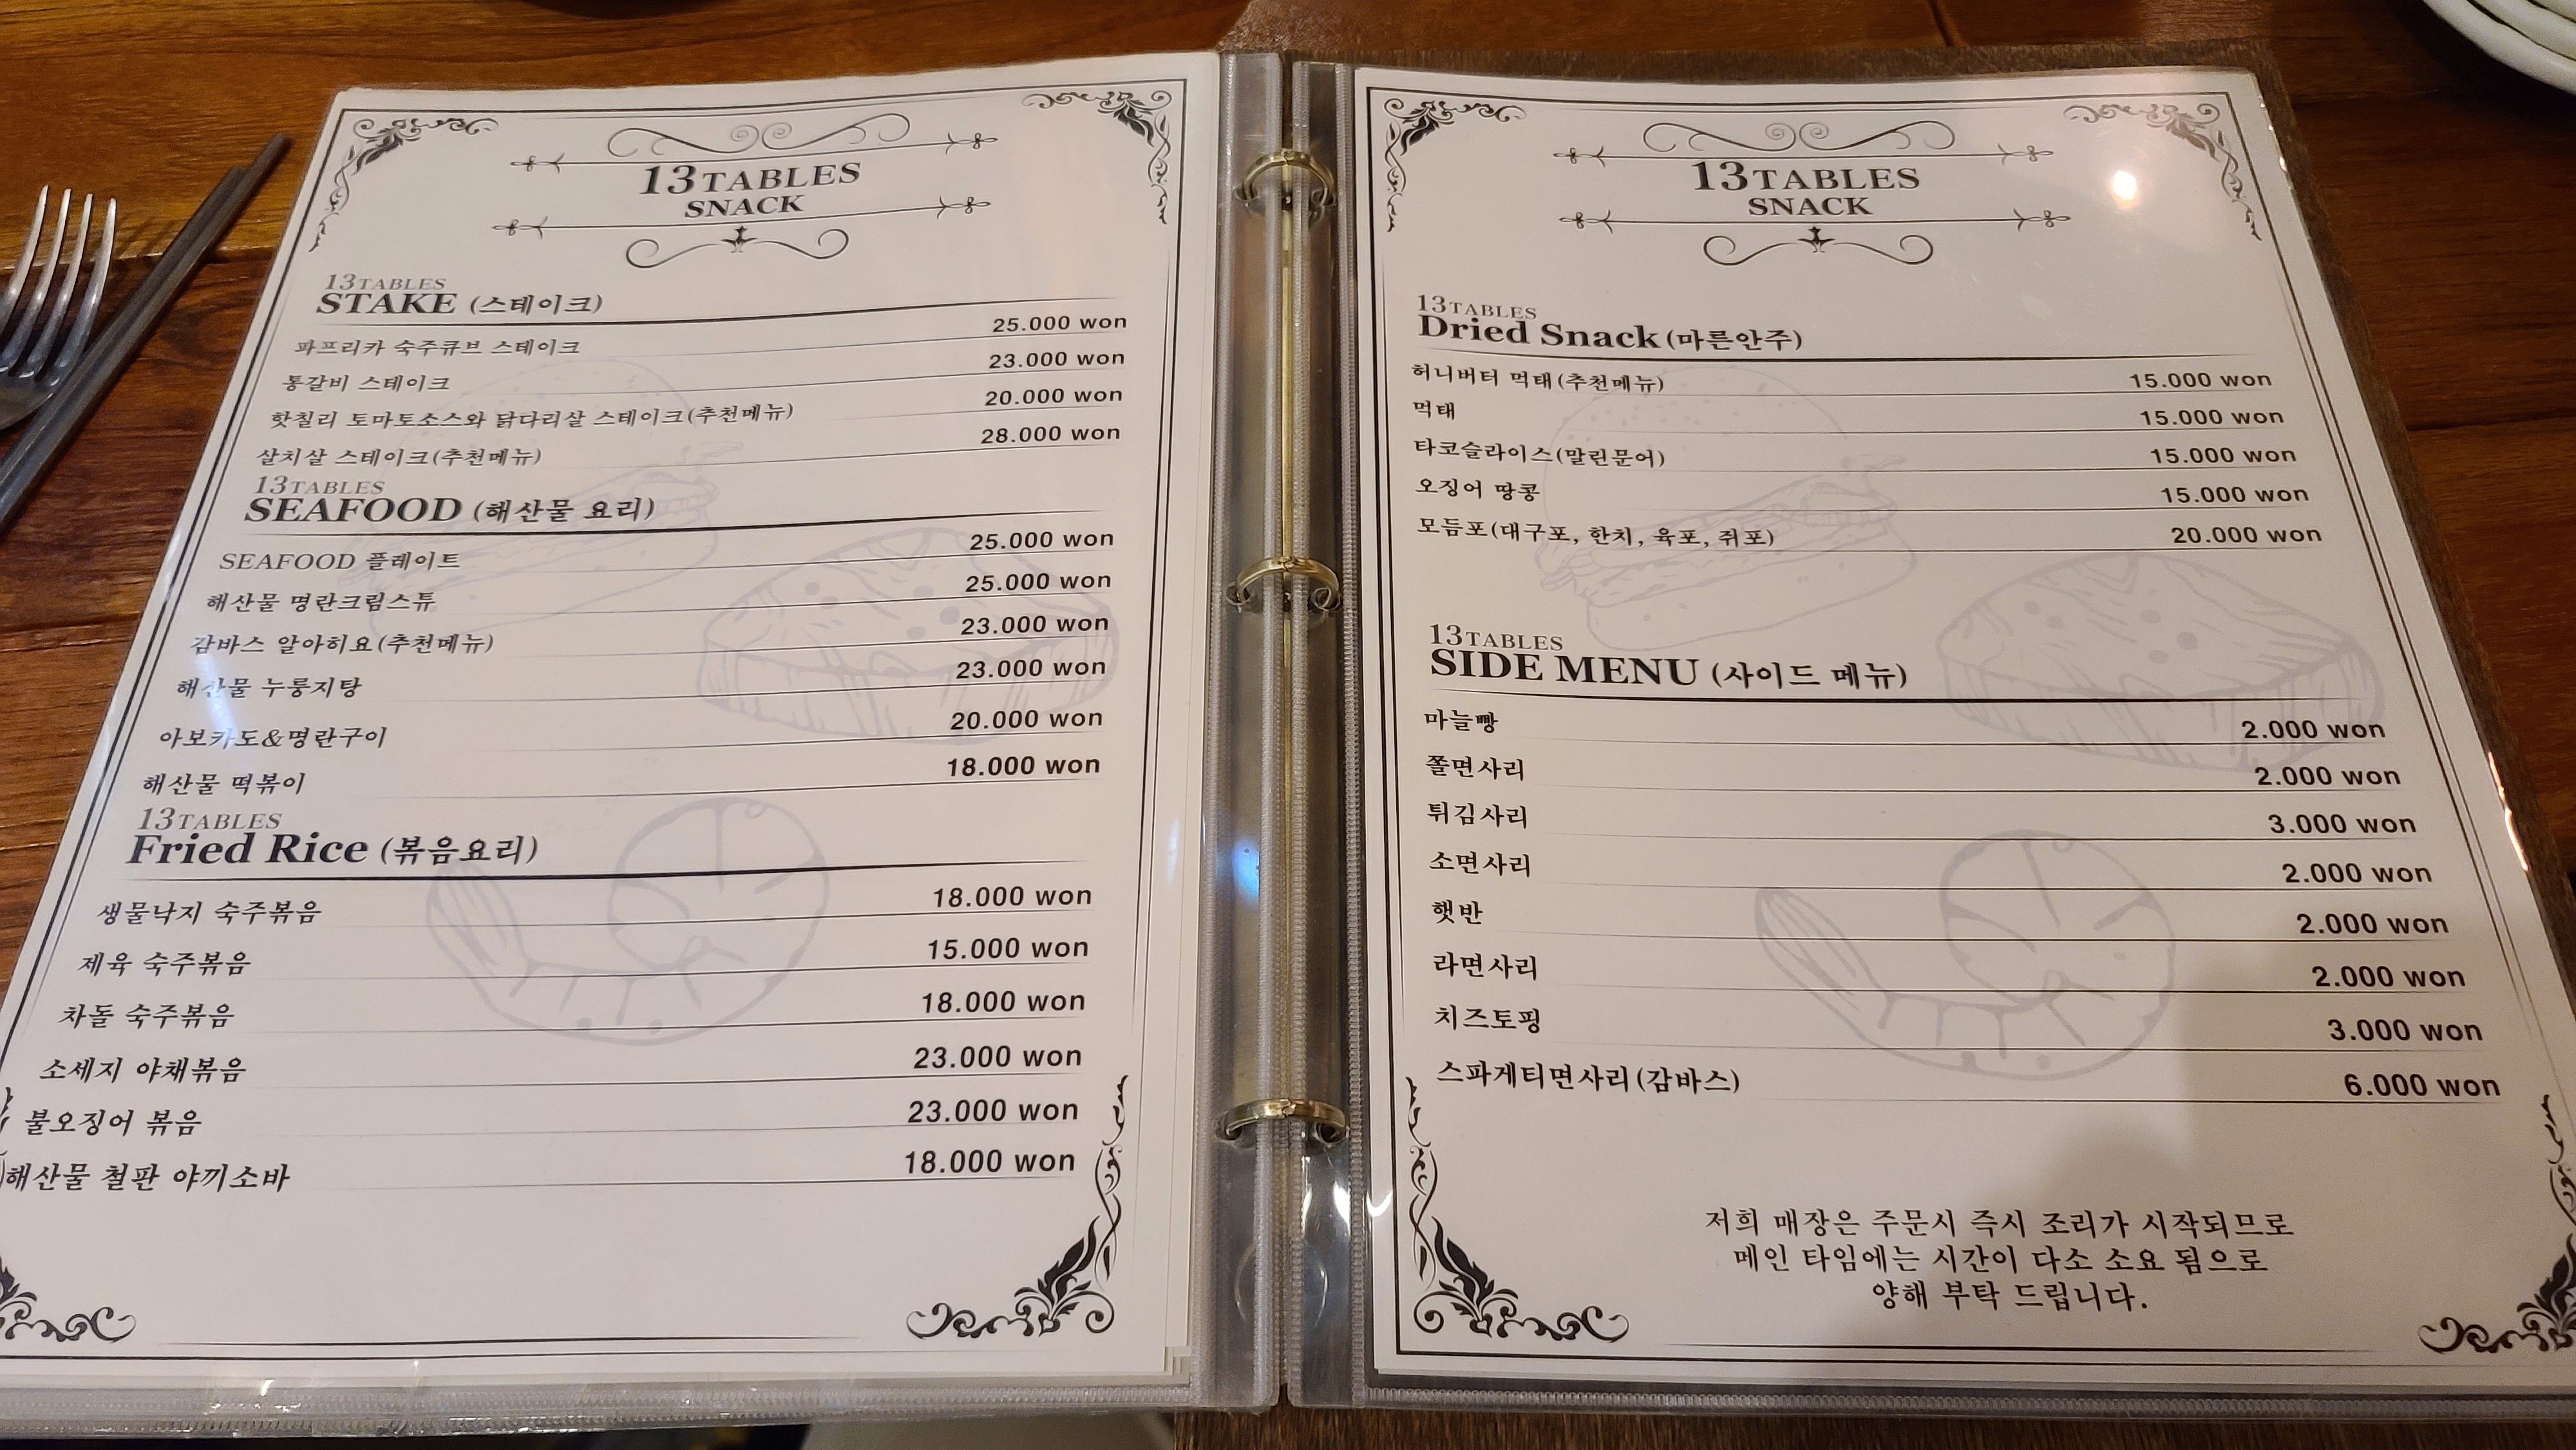 13TABLES
SNACK
13TABLES
STAKE (스테이크)
파프리카 숙주큐브 스테이크 25.000 won
통갈비 스테이크 23.000 won
핫칠리 토마토소스와 닭다리살 스테이크(추천메뉴) 20.000 won
살치살 스테이크(추천메뉴) 28.000 won
13TABLES
SEAFOOD (해산물 요리)
SEAFOOD 플레이트 25.000 won
해산물 명란크림스튜 25.000 won
감바스 알아히요(추천메뉴) 23.000 won
해산물 누룽지탕 23.000 won
아보카도&명란구이 20.000 won
해산물 떡볶이 18.000 won
13TABLES
Fried Rice (볶음요리)
생물낙지 숙주볶음 18.000 won
제육 숙주볶음 15.000 won
차돌 숙주볶음 18.000 won
소세지 야채볶음 23.000 won
불오징어 볶음 23.000 won
해산물 철판 야끼소바 18.000 won
13TABLES
SNACK
13TABLES
Dried Snack (마른안주)
허니버터 먹태(추천메뉴) 15.000 won
먹태 15.000 won
타코슬라이스(말린문어) 15.000 won
오징어 땅콩 15.000 won
모듬포(대구포, 한치, 육포, 쥐포) 20.000 won
13TABLES
SIDE MENU (사이드 메뉴)
마늘빵 2.000 won
쫄면사리 2.000 won
튀김사리 3.000 won
소면사리 2.000 won
햇반 2.000 won
라면사리 2.000 won
치즈토핑 3.000 won
스파게티면사리(감바스) 6.000 won
저희 매장은 주문시 즉시 조리가 시작되므로
메인 타임에는 시간이 다소 소요 됨으로
양해 부탁 드립니다.